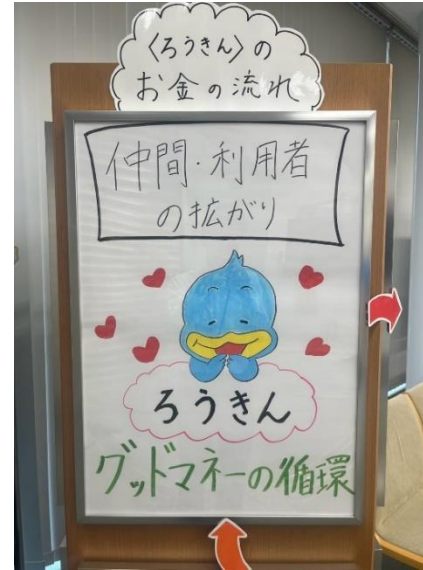 〈ろうきん〉の
お金の流れ
仲間・利用者
の拡がり
ろうきん
グッドマネーの循環